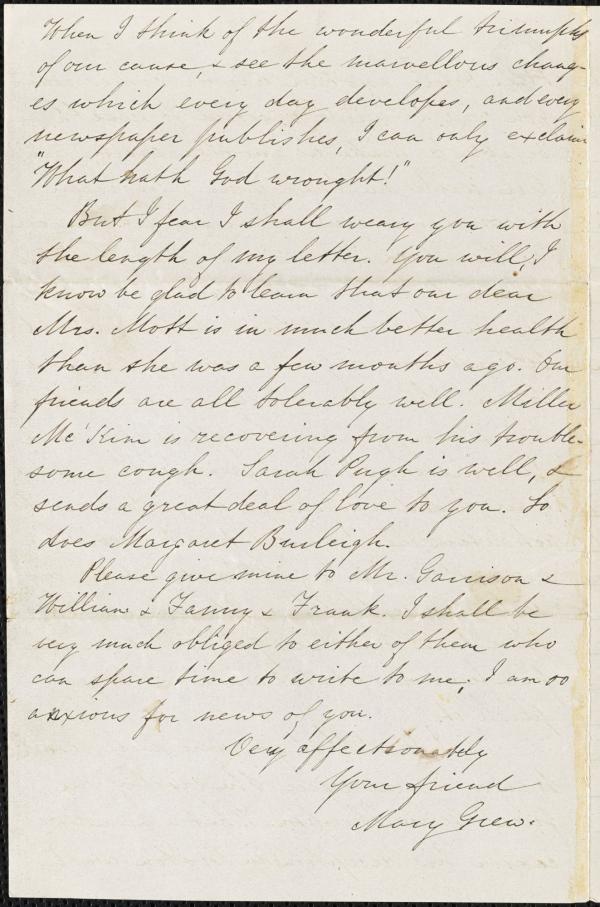 When I think of the wonderful triumphs
of our cause, & see the marvellous chang-
es which every day developes, and every
newspaper publishes, I can only exclaim
"What hath God wrought!"
But I fear I shall weary you with
the length of my letter. You will, I
know be glad to learn that our dear
Mrs. Mott is in much better health
than she was a few months ago. Our
friends are all tolerably well. Miller
McKim is recovering from his trouble-
some cough. Sarah Pugh is well, &
sends a great deal of love to you. So
does Margaret Burleigh.
Please give mine to Mr. Garrison &
William & Fanny & Frank. I shall be
very much obliged to either of them who
can spare time to write to me; I am so
anxious for news of you.
Very affectionately
Your friend
Mary Grew.